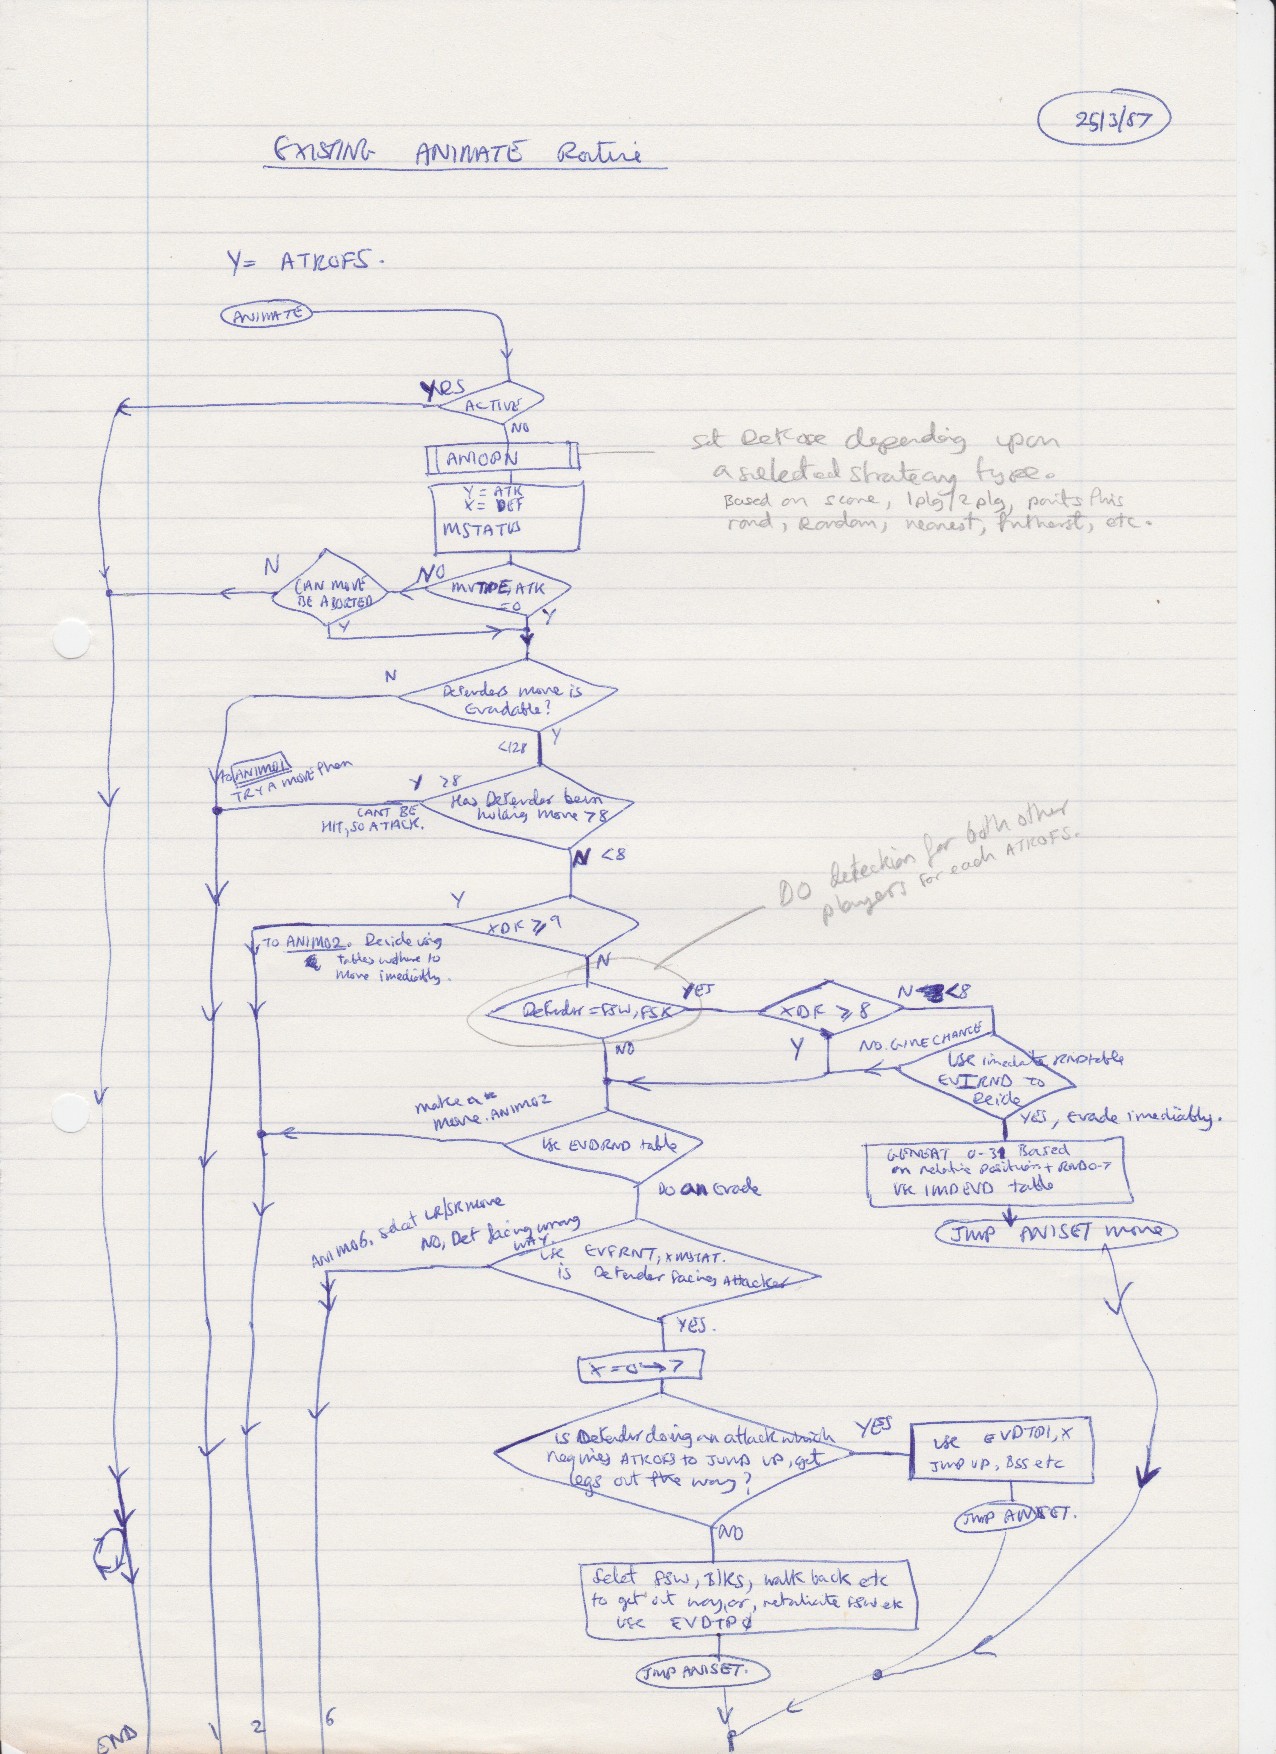 25/3/87
EXISTING ANIMATE Routine
Y= ATROFS.
ANIMATE
YES
ACTIVE
NO
ANIOPN
Set DEFOSE depending upon
a selected strategy type.
Based on score, 1plg/2plg, points this
rond, Random, nearest, furtherst, etc.
Y = ATK
X = DEF
MSTATUS
N
CAN MOVE
BE ABORTED
Y
NO
MVTYPE, ATK
=0
Y
N
Defenders move is
Evadable?
<128
Y
to ANIM01
TRY A move then
Y >8
CANT BE
HIT, SO ATTACK.
Has Defender been
holding move >8
N <8
DO detection for both other
players for each ATROFS.
Y
XDR ≥ 9
TO ANIM02. Decide using
tables wether to
move imediatly.
N
Defender = FSW, FSK
YES
XDR ≥ 8
N <8
NO
Y
NO. GIVE CHANCE
USE imediate RND table
EVIRND TO
Decide
YES, Evade imediatly.
make a
move. ANIM02
USE EVDRND table
GENERAT 0-31 Based
on relative position + RND0-7
USE IMDEVD table
JMP ANISET move
DO an Evade
ANIM06, select LR/SR move
NO, Def facing wrong
WAY.
USE EVFRNT, XMSTAT.
is Defender facing Attacker
YES.
X = 0 → 7
is Defender doing an attack which
requires ATROFS to JUMP UP, get
legs out the way?
YES
USE EVDTP1, X
JMP UP, BSS etc
JMP ANISET.
NO
Select FSW, BIKS, walk back etc
to get out way, or, retaliate FSW etc
USE EVDTP0
JMP ANISET.
END
1
2
6
P